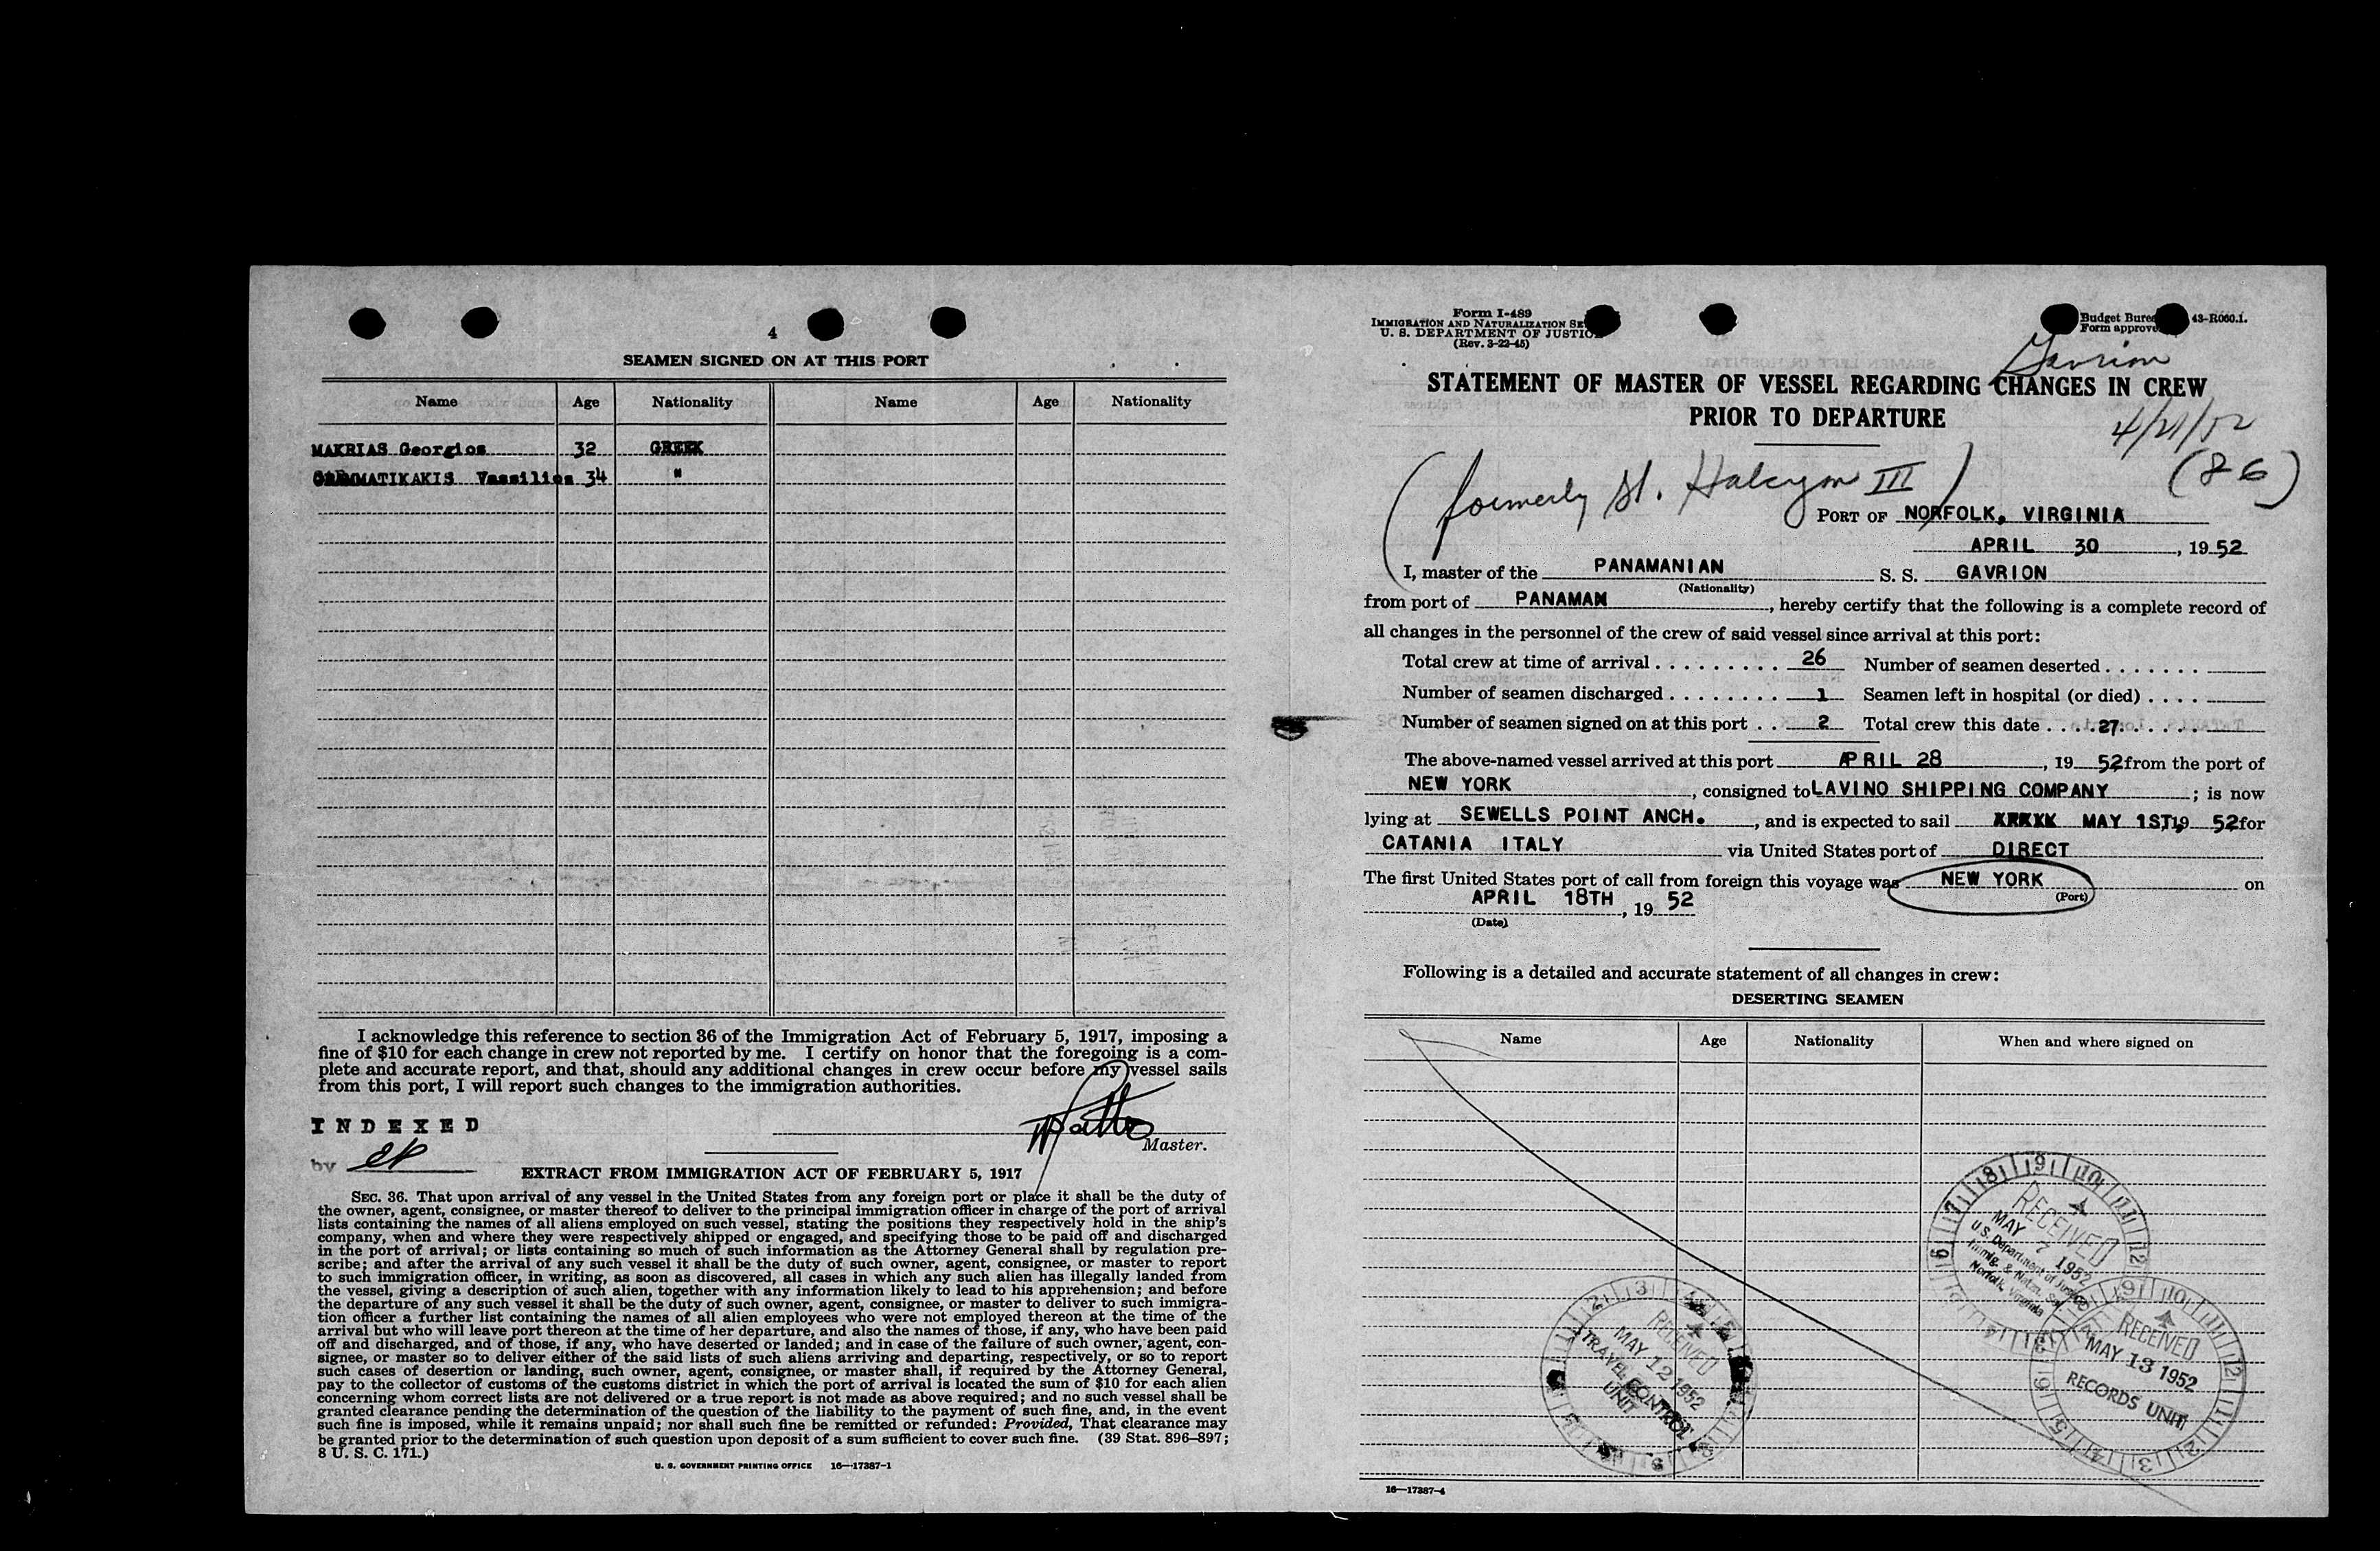 4
SEAMEN SIGNED ON AT THIS PORT
Name Age Nationality Name Age Nationality
MAKRIAS Georgios 32 GREEK
GRAMMATIKAKIS Vassilios 34 "
I acknowledge this reference to section 36 of the Immigration Act of February 5, 1917, imposing a
fine of $10 for each change in crew not reported by me. I certify on honor that the foregoing is a com-
plete and accurate report, and that, should any additional changes in crew occur before my vessel sails
from this port, I will report such changes to the immigration authorities.
INDEXED
by
Master.
EXTRACT FROM IMMIGRATION ACT OF FEBRUARY 5, 1917
SEC. 36. That upon arrival of any vessel in the United States from any foreign port or place it shall be the duty of
the owner, agent, consignee, or master thereof to deliver to the principal immigration officer in charge of the port of arrival
lists containing the names of all aliens employed on such vessel, stating the positions they respectively hold in the ship's
company, when and where they were respectively shipped or engaged, and specifying those to be paid off and discharged
in the port of arrival; or lists containing so much of such information as the Attorney General shall by regulation pre-
scribe; and after the arrival of any such vessel it shall be the duty of such owner, agent, consignee, or master to report
to such immigration officer, in writing, as soon as discovered, all cases in which any such alien has illegally landed from
the vessel, giving a description of such alien, together with any information likely to lead to his apprehension; and before
the departure of any such vessel it shall be the duty of such owner, agent, consignee, or master to deliver to such immigra-
tion officer a further list containing the names of all alien employees who were not employed thereon at the time of the
arrival but who will leave port thereon at the time of her departure, and also the names of those, if any, who have been paid
off and discharged, and of those, if any, who have deserted or landed; and in case of the failure of such owner, agent, con-
signee, or master so to deliver either of the said lists of such aliens arriving and departing, respectively, or so to report
such cases of desertion or landing, such owner, agent, consignee, or master shall, if required by the Attorney General,
pay to the collector of customs of the customs district in which the port of arrival is located the sum of $10 for each alien
concerning whom correct lists are not delivered or a true report is not made as above required; and no such vessel shall be
granted clearance pending the determination of the question of the liability to the payment of such fine, and, in the event
such fine is imposed, while it remains unpaid; nor shall such fine be remitted or refunded: Provided, That clearance may
be granted prior to the determination of such question upon deposit of a sum sufficient to cover such fine. (39 Stat. 896–897;
8 U. S. C. 171.)
U. S. GOVERNMENT PRINTING OFFICE 16—17387-1
Form I-489
IMMIGRATION AND NATURALIZATION SE
U. S. DEPARTMENT OF JUSTIC
(Rev. 3-22-45)
Budget Bure 43-R060.1.
Form approve
Gavrion
STATEMENT OF MASTER OF VESSEL REGARDING CHANGES IN CREW
PRIOR TO DEPARTURE
4/21/52
(86)
(formerly St. Halcyon III)
PORT OF NORFOLK, VIRGINIA
APRIL 30, 1952
I, master of the PANAMANIAN S. S. GAVRION
(Nationality)
from port of PANAMAN, hereby certify that the following is a complete record of
all changes in the personnel of the crew of said vessel since arrival at this port:
Total crew at time of arrival . . . . . . . . . 26 Number of seamen deserted . . . . . . .
Number of seamen discharged . . . . . . . . 1 Seamen left in hospital (or died) . . . .
Number of seamen signed on at this port . . 2 Total crew this date . . . . 27 . . . . .
The above-named vessel arrived at this port APRIL 28, 19 52 from the port of
NEW YORK, consigned to LAVINO SHIPPING COMPANY; is now
lying at SEWELLS POINT ANCH., and is expected to sail MAY 1ST, 19 52 for
CATANIA ITALY via United States port of DIRECT
The first United States port of call from foreign this voyage was NEW YORK on
(Port)
APRIL 18TH, 19 52
(Date)
Following is a detailed and accurate statement of all changes in crew:
DESERTING SEAMEN
Name Age Nationality When and where signed on
RECEIVED
MAY 7 1952
U.S. Department of Justice
Immig. & Natzn. Ser.
Norfolk, Virginia
RECEIVED
MAY 12 1952
TRAVEL CONTROL
UNIT
RECEIVED
MAY 13 1952
RECORDS UNIT
16—17387-4